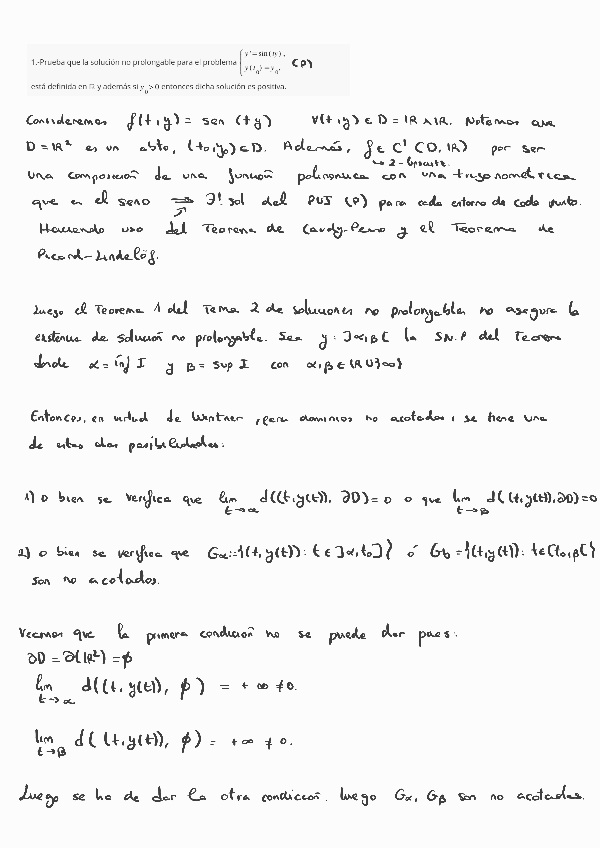 1.-Prueba que la solución no prolongable para el problema { y' = sin(ty), y(t_0) = y_0, (P)
está definida en ℝ y además si y_0 > 0 entonces dicha solución es positiva.
Consideremos f(t,y) = sen(ty) ∀(t,y) ∈ D = ℝ×ℝ. Notemos que
D = ℝ² es un abto, (t0,y0) ∈ D. Además, f ∈ C¹(D,ℝ) por ser
↳ 2-Lipschitz.
una composición de una función polinomica con una trigonometrica
que es el seno ⟹ ∃! sol del PVI (P) para cada entorno de cada punto.
Haciendo uso del Teorema de Cauchy-Peano y el Teorema de
Picard-Lindelöf.
Luego el Teorema 1 del Tema 2 de soluciones no prolongables no asegura la
existencia de solución no prolongable. Sea y: ]α,β[ la S.N.P del Teorema
donde α = inf I y β = sup I con α,β ∈ ℝ∪{∞}
Entonces, en virtud de Wintner, para dominios no acotados, se tiene una
de estas dos posibilidades:
1) o bien se verifica que lim_{t→α} d((t,y(t)), ∂D) = 0 o que lim_{t→β} d((t,y(t)),∂D) = 0
2) o bien se verifica que Gα := {(t,y(t)): t ∈ ]α,t0]} ó Gb = {(t,y(t)): t ∈ [t0,β[}
son no acotados.
Veamos que la primera condición no se puede dar pues:
∂D = ∂(ℝ²) = ϕ
lim_{t→α} d((t,y(t)), ϕ) = +∞ ≠ 0.
lim_{t→β} d((t,y(t)), ϕ) = +∞ ≠ 0.
Luego se ha de dar la otra condición, luego Gα, Gβ son no acotados.